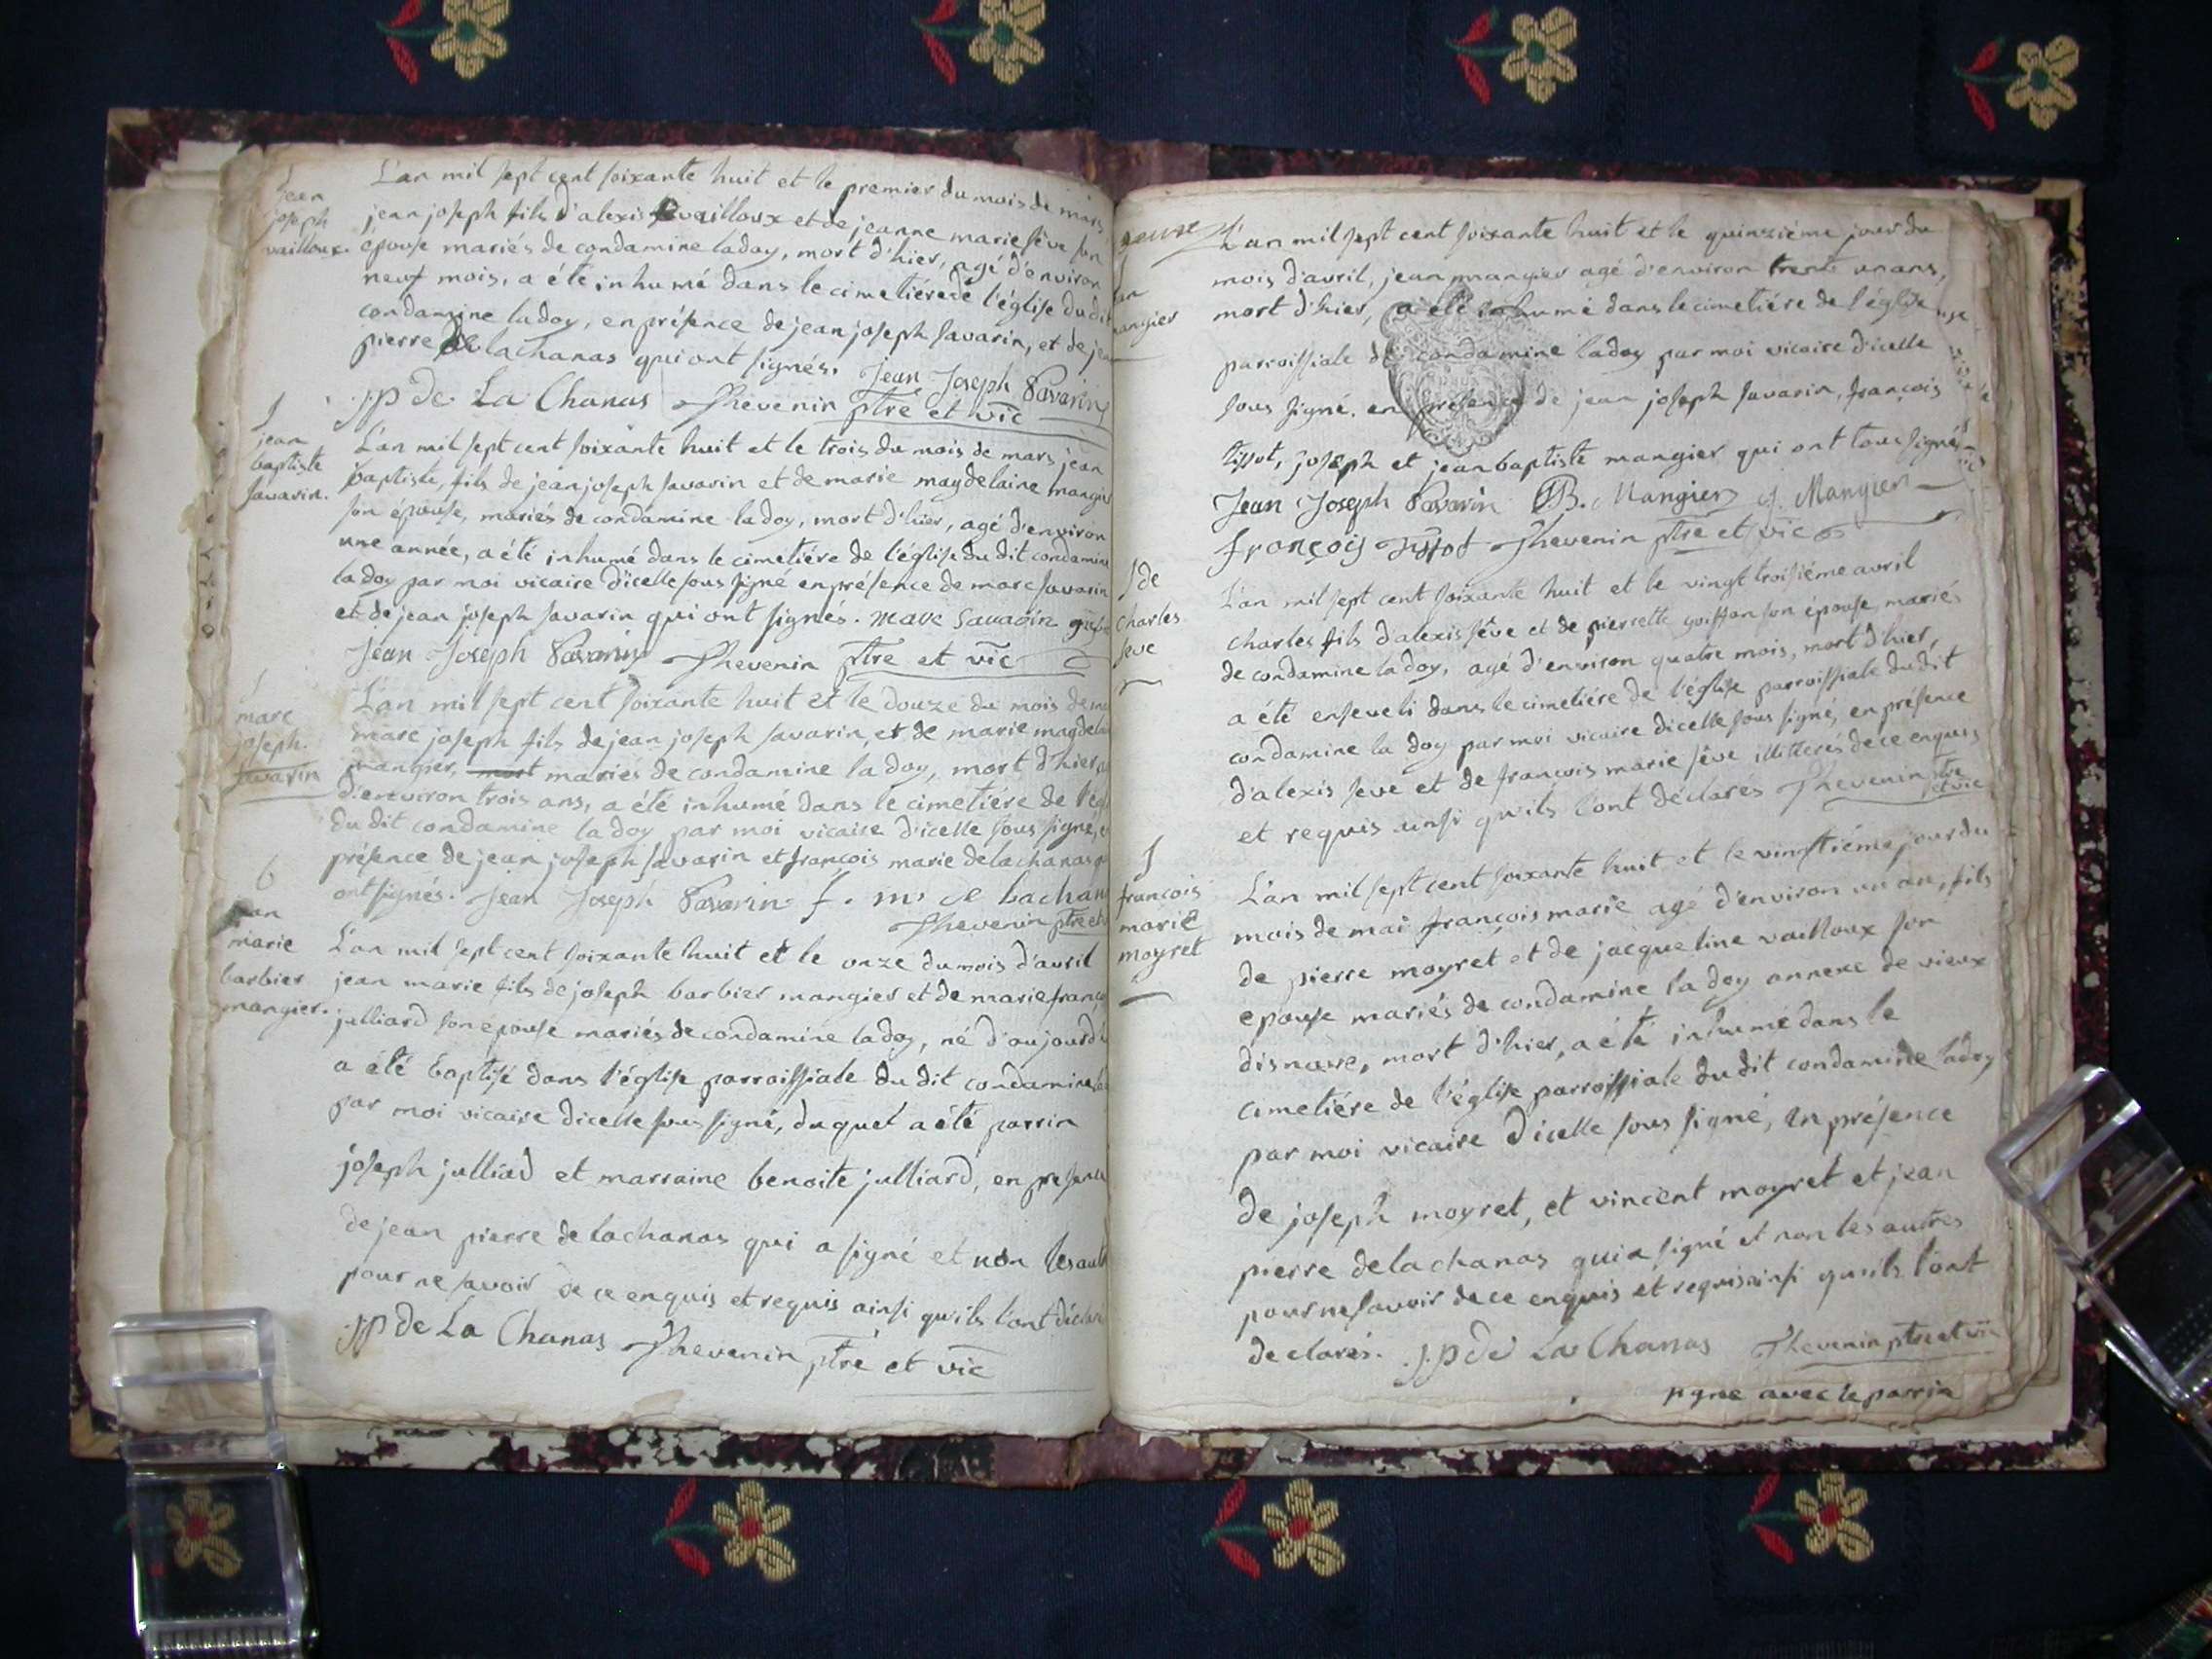 L'an mil sept cent soixante huit et le premier du mois de mars,
jean joseph fils d'alexis vailloux et de jeanne marie sève son
épouse mariés de condamine ladoy, mort d'hier, agé d'environ
neuf mois, a été inhumé dans le cimetiére de l'église du dit
condamine ladoy, en présence de jean joseph savarin, et de jean
pierre delachanas qui ont signés. Jean Joseph Savarin
j.p de La Chanas Thevenin ptre et vic
jean
joseph
vailloux.
L'an mil sept cent soixante huit et le trois du mois de mars jean
baptiste, fils de jean joseph savarin et de marie magdelaine mangier
son épouse, mariés de condamine ladoy, mort d'hier, agé d'environ
une année, a été inhumé dans le cimetiére de l'église du dit condamine
ladoy par moi vicaire d'icelle sous signé en présence de marc savarin
et de jean joseph savarin qui ont signés. marc savarin
Jean Joseph Savarin Thevenin ptre et vic
jean
baptiste
savarin.
L'an mil sept cent soixante huit et le douze du mois de
marc joseph fils de jean joseph savarin, et de marie magdela
mangier, mort mariés de condamine ladoy, mort d'hier,
d'environ trois ans, a été inhumé dans le cimetiére de l'égl
du dit condamine ladoy par moi vicaire d'icelle sous signé, e
présence de jean joseph savarin et françois marie delachanas
ont signés. Jean Joseph Savarin f. m. de Lachana
Thevenin ptre et
marc
joseph.
savarin
L'an mil sept cent soixante huit et le onze du mois d'avril
jean marie fils de joseph barbier mangier et de marie franç
julliard son épouse mariés de condamine ladoy, né d'aujourd'
a été baptisé dans l'église parroissiale du dit condamine
par moi vicaire d'icelle sous signé, duquel a été parrin
joseph julliad et marraine benoite julliard, en présence
de jean pierre delachanas qui a signé et non les aut
pour ne savoir de ce enquis et requis ainsi qu'ils l'ont déclar
j.p de La Chanas Thevenin ptre et vic
6
marie
barbier
mangier.
L'an mil sept cent soixante huit et le quinzième jour du
mois d'avril, jean mangier agé d'environ trente un ans,
mort d'hier, a été inhumé dans le cimetiére de l'église
parroissiale de condamine ladoy par moi vicaire d'icelle
sous signé. en présence de jean joseph savarin, françois
tissot, joseph et jean baptiste mangier qui ont tous signés
Jean Joseph Savarin J.B. Mangier J. Mangier
françois tissot Thevenin ptre et vic
angier
L'an mil sept cent soixante huit et le vingt troisiéme avril
charles fils d'alexis sêve et de pierrette goiffon son épouse, mariés
de condamine ladoy, agé d'environ quatre mois, mort d'hier,
a été enseveli dans le cimetiére de l'église parroissiale du dit
condamine la doy par moi vicaire d'icelle sous signé, en présence
d'alexis seve et de françois marie sêve illitterés de ce enquis
et requis ainsi qu'ils l'ont déclarés Thevenin ptre
et vic
de
charles
seve
L'an mil sept cent soixante huit et le vingtiéme jour du
mois de mai françois marie agé d'environ un an, fils
de pierre moyret et de jacqueline vailloux son
epouse mariés de condamine la doy annexe de vieux
disnave, mort d'hier, a été inhumé dans le
cimetiére de l'église parroissiale du dit condamine ladoy
par moi vicaire d'icelle sous signé, en présence
de joseph moyret, et vincent moyret et jean
pierre delachanas qui a signé et non les autres
pour ne savoir de ce enquis et requis ainsi qu'ils l'ont
declarés. j.p de La Chanas Thevenin ptre et vic
françois
marie
moyret
signe avec le parrin